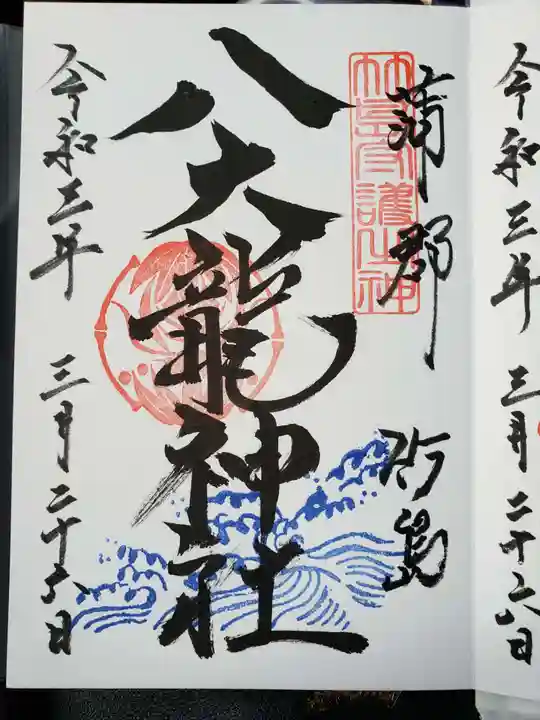 令和三年 三月二十六日
蒲郡 竹島
八大龍神社
令和三年 三月二十六日